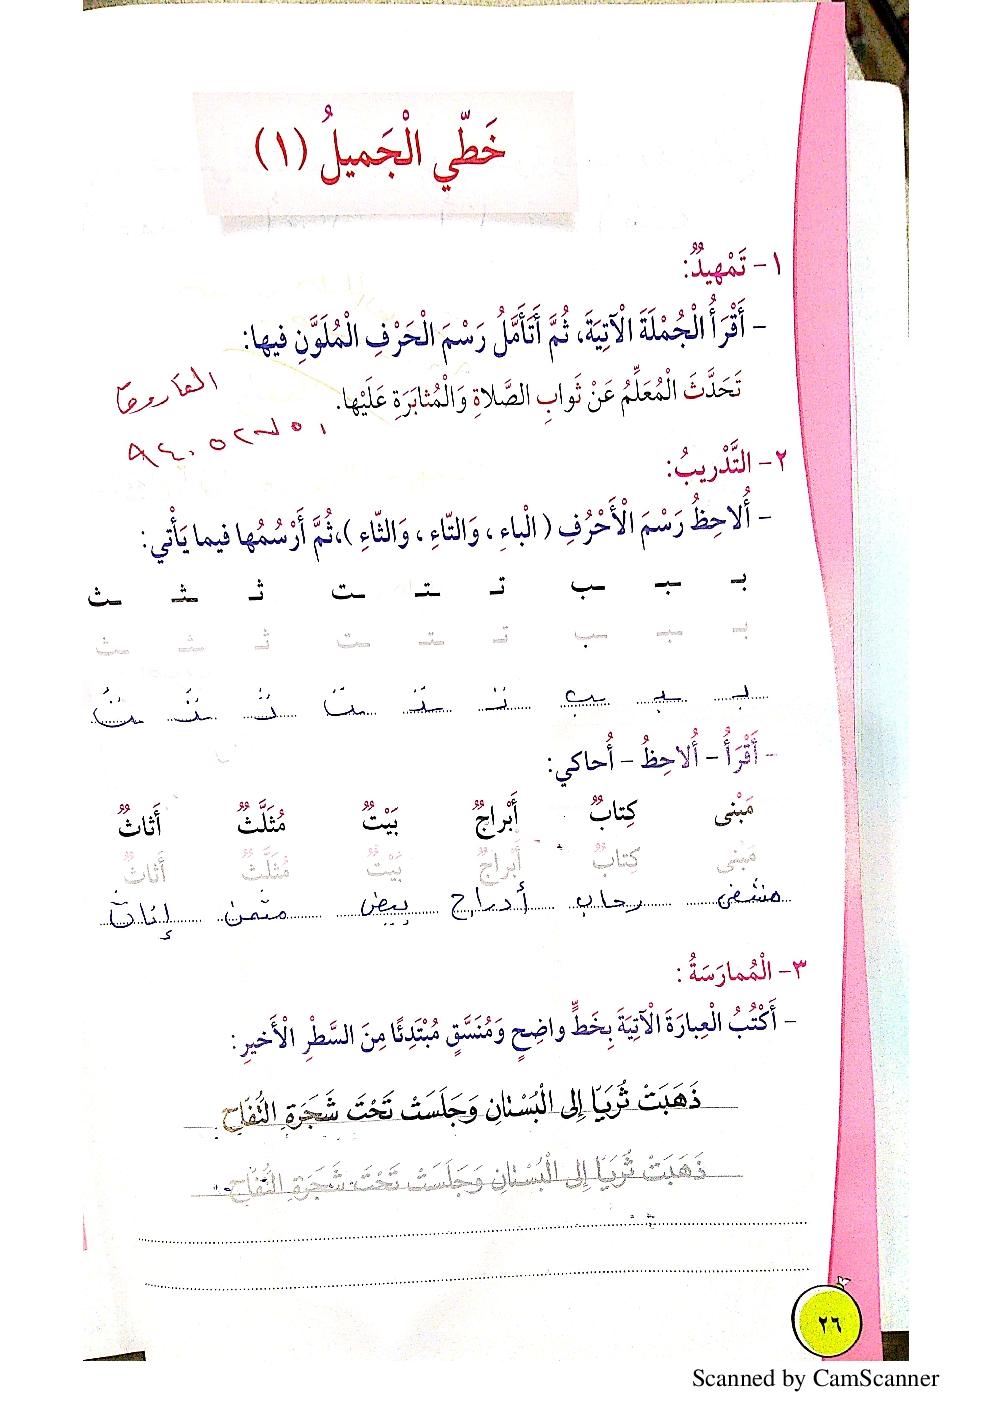 خَطِّي الْجَمِيلُ (١)
١- تَمْهِيدٌ:
- أَقْرَأُ الْجُمْلَةَ الْآتِيَةَ، ثُمَّ أَتَأَمَّلُ رَسْمَ الْحَرْفِ الْمُلَوَّنِ فيها:
تَحَدَّثَ الْمُعَلِّمُ عَنْ ثَوابِ الصَّلاةِ وَالْمُثابَرَةِ عَلَيْها.
٢- التَّدْريبُ:
- أُلاحِظُ رَسْمَ الْأَحْرُفِ (الْباءِ ، وَالتّاءِ ، وَالثّاءِ)، ثُمَّ أَرْسُمُها فيما يَأْتي:
بـ ـبـ ـب تـ ـتـ ـت ثـ ـثـ ـث
بـ ـبـ ـب تـ ـتـ ـت ثـ ـثـ ـث
بـ ـبـ ـب تـ ـتـ ـت ثـ ـثـ ـث
- أَقْرَأُ - أُلاحِظُ - أُحاكي:
مَبْنى كِتابٌ أَبْراجٌ بَيْتٌ مُثَلَّثٌ أَثاثٌ
مَبْنى كِتابٌ أَبْراجٌ بَيْتٌ مُثَلَّثٌ أَثاثٌ
رحاب أدراج بيض مثمن إناث
٣- الْمُمارَسَةُ:
- أَكْتُبُ الْعِبارَةَ الْآتِيَةَ بِخَطٍّ واضِحٍ وَمُنَسَّقٍ مُبْتَدِئًا مِنَ السَّطْرِ الْأَخيرِ:
ذَهَبَتْ ثُرَيّا إِلى الْبُسْتانِ وَجَلَسَتْ تَحْتَ شَجَرَةِ التُّفّاحِ.
ذَهَبَتْ ثُرَيّا إِلى الْبُسْتانِ وَجَلَسَتْ تَحْتَ شَجَرَةِ التُّفّاحِ.
٢٦
Scanned by CamScanner